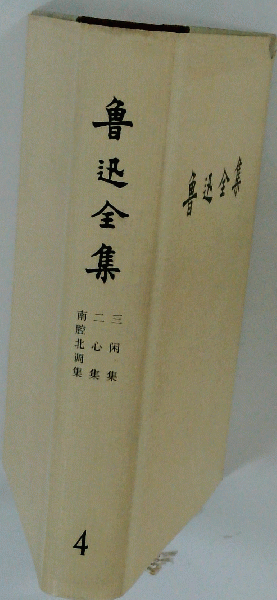 鲁迅全集
三闲集
二心集
南腔北调集
4
鲁迅全集